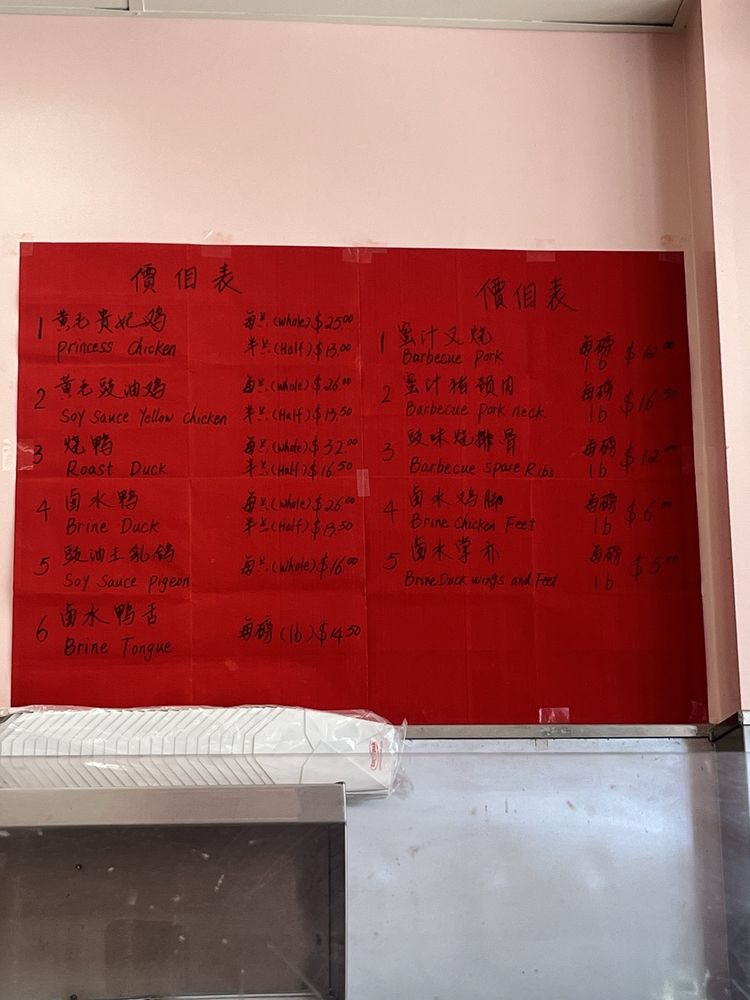 價佀表
1 黄毛貴妃鸡 每只(whole)$25.00
princess Chicken 半只(Half)$13.00
2 黄毛豉油鸡 每只(whole)$26.00
Soy Sauce Yellow chicken 半只(Half)$13.50
3 烧鸭 每只(whole)$32.00
Roast Duck 半只(Half)$16.50
4 卤水鸭 每只(whole)$26.00
Brine Duck 半只(Half)$13.50
5 豉油王乳鸽 每只(whole)$16.00
Soy Sauce pigeon
6 卤水鸭舌 每磅(lb)$14.50
Brine Tongue
價佀表
1 蜜汁叉烧 每磅
Barbecue pork lb $12.00
2 蜜汁猪颈肉 每磅
Barbecue pork neck lb $16.50
3 豉味烧排骨 每磅
Barbecue Spare Ribs lb $12.00
4 卤水鸡脚 每磅
Brine Chicken Feet lb $6.00
5 卤水掌亦 每磅
Brine Duck wings and Feet lb $5.00